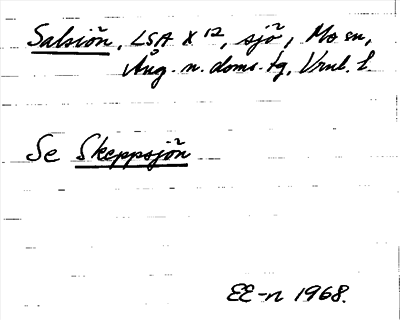 Salsjön, LSA X 12, sjö, Mo sn,
Ång. n. doms.-tg, Vnul. l.
Se Skeppsjön
EE-n 1968.